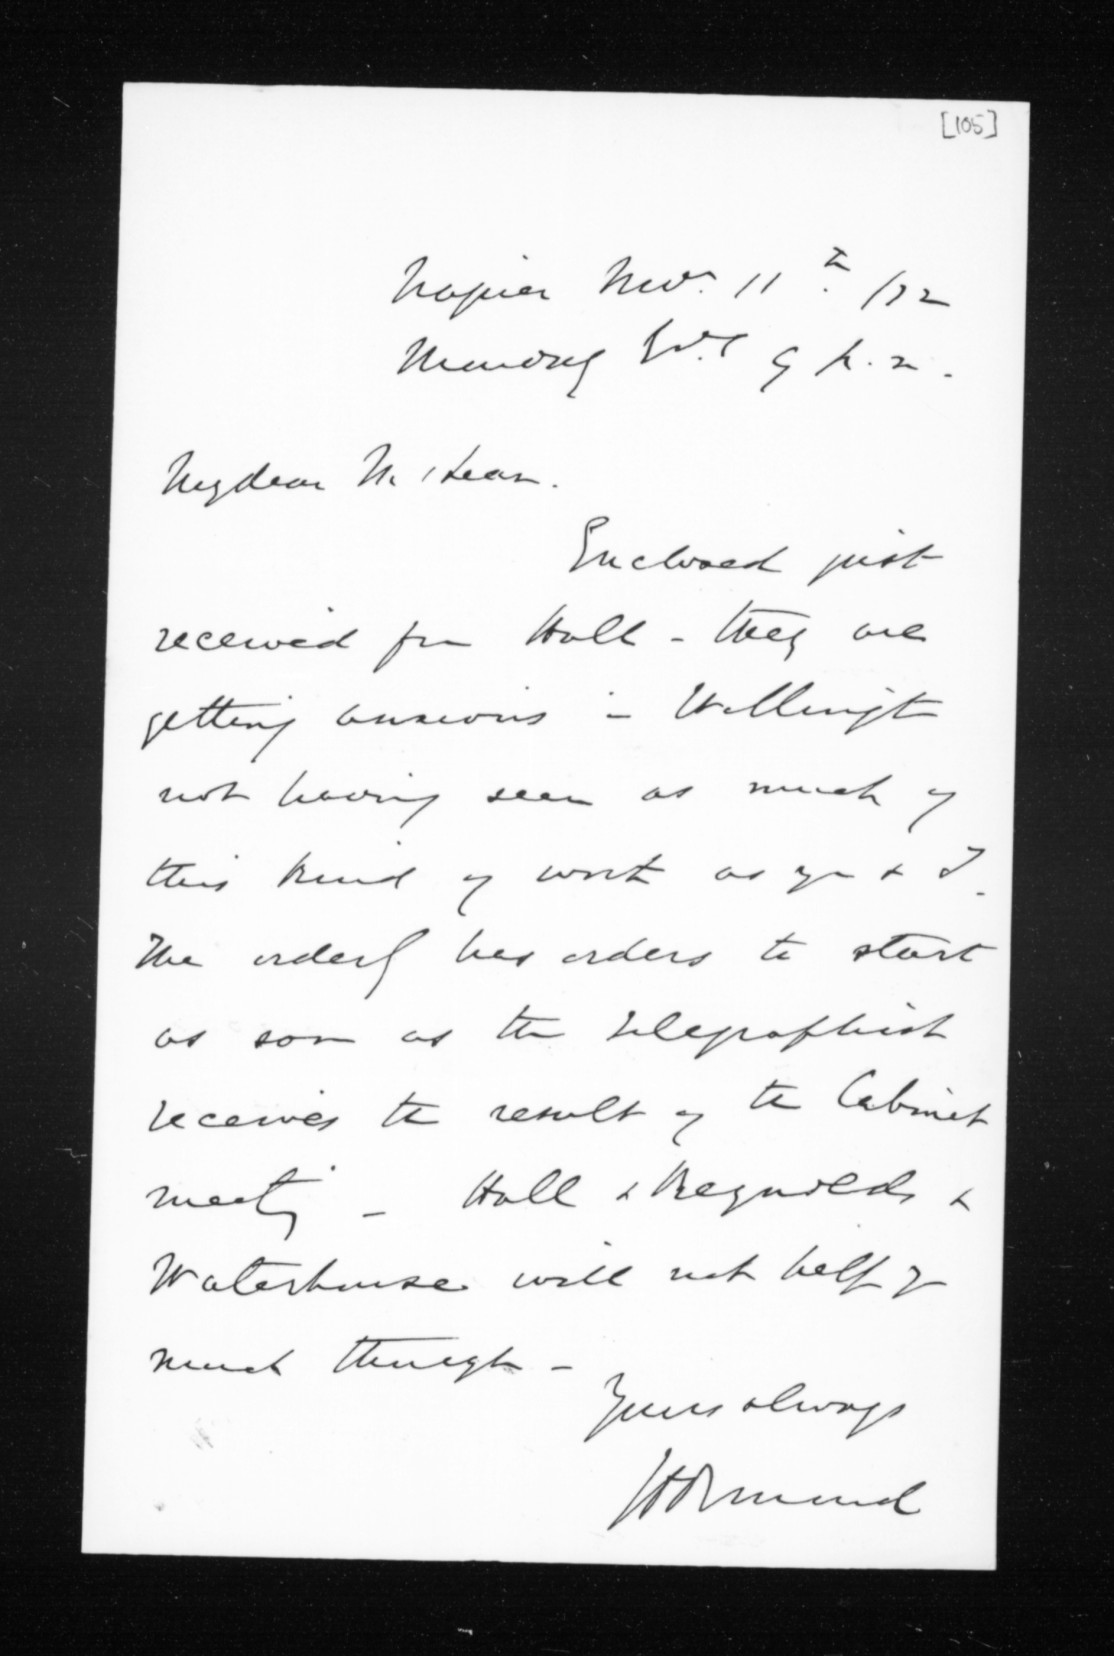 [105]
Napier Nov. 11th /72
Monday Evg 9 p.m.
My dear McLean.
Enclosed just
received fm Hall - they are
getting anxious in Wellington
not having seen as much of
this kind of work as you & I.
The orderly has orders to start
as soon as the telegraphist
receives the result of the Cabinet
meeting - Hall & Reynolds &
Waterhouse will not help you
much though -
Yours always
J D Ormond